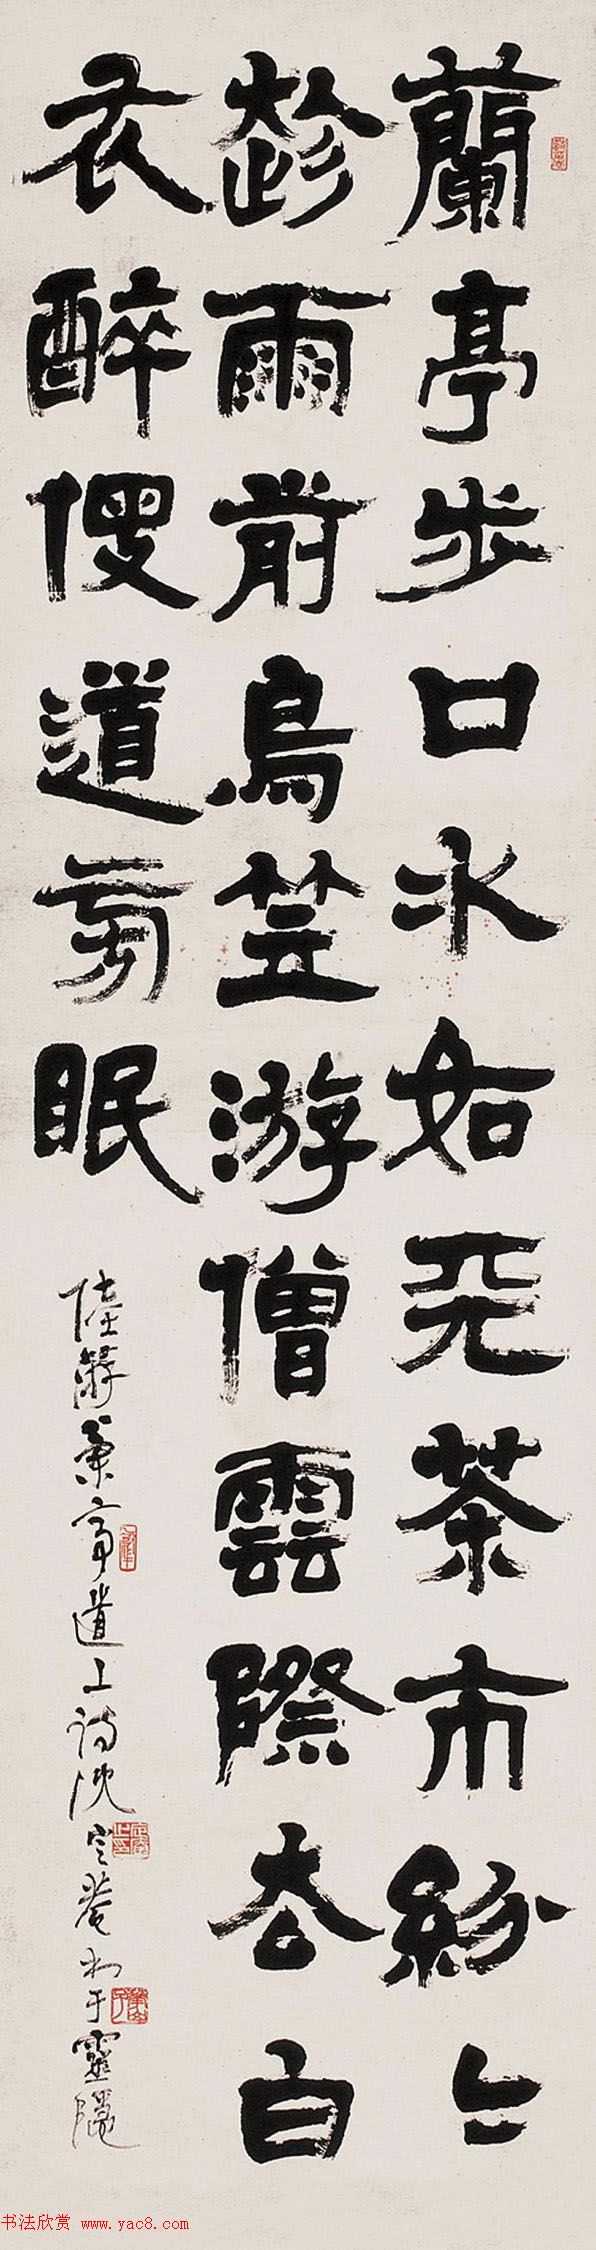 蘭亭步口水如天茶市紛〻
趁雨前烏笠游僧雲際去白
衣醉傁道旁眠
陸游蘭亭道上詩沈定菴書于靈隱
书法欣赏 www.yac8.com